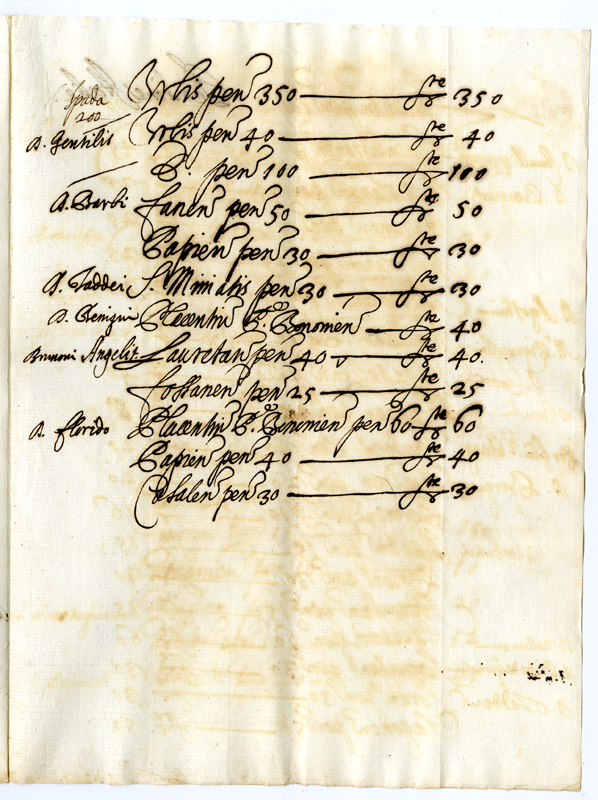 Spada Urbis pen 350 — ste 350
200
A. Gentilis Urbis pen 40 — ste 40
P. pen 100 — ste 100
A. Barbi Fanen pen 50 — ste 50
Papien pen 30 — ste 30
A. Taddei S. Miniatis pen 30 — ste 30
A. Placentin P. Bonomien — ste 40
Brunoni Angelis Lauretan pen 40 — ste 40.
Fossanen pen 25 — ste 25
A. Florido Placentin P. Bonomien pen 60 ste 60
Papien pen 40 — ste 40
Casalen pen 30 — ste 30